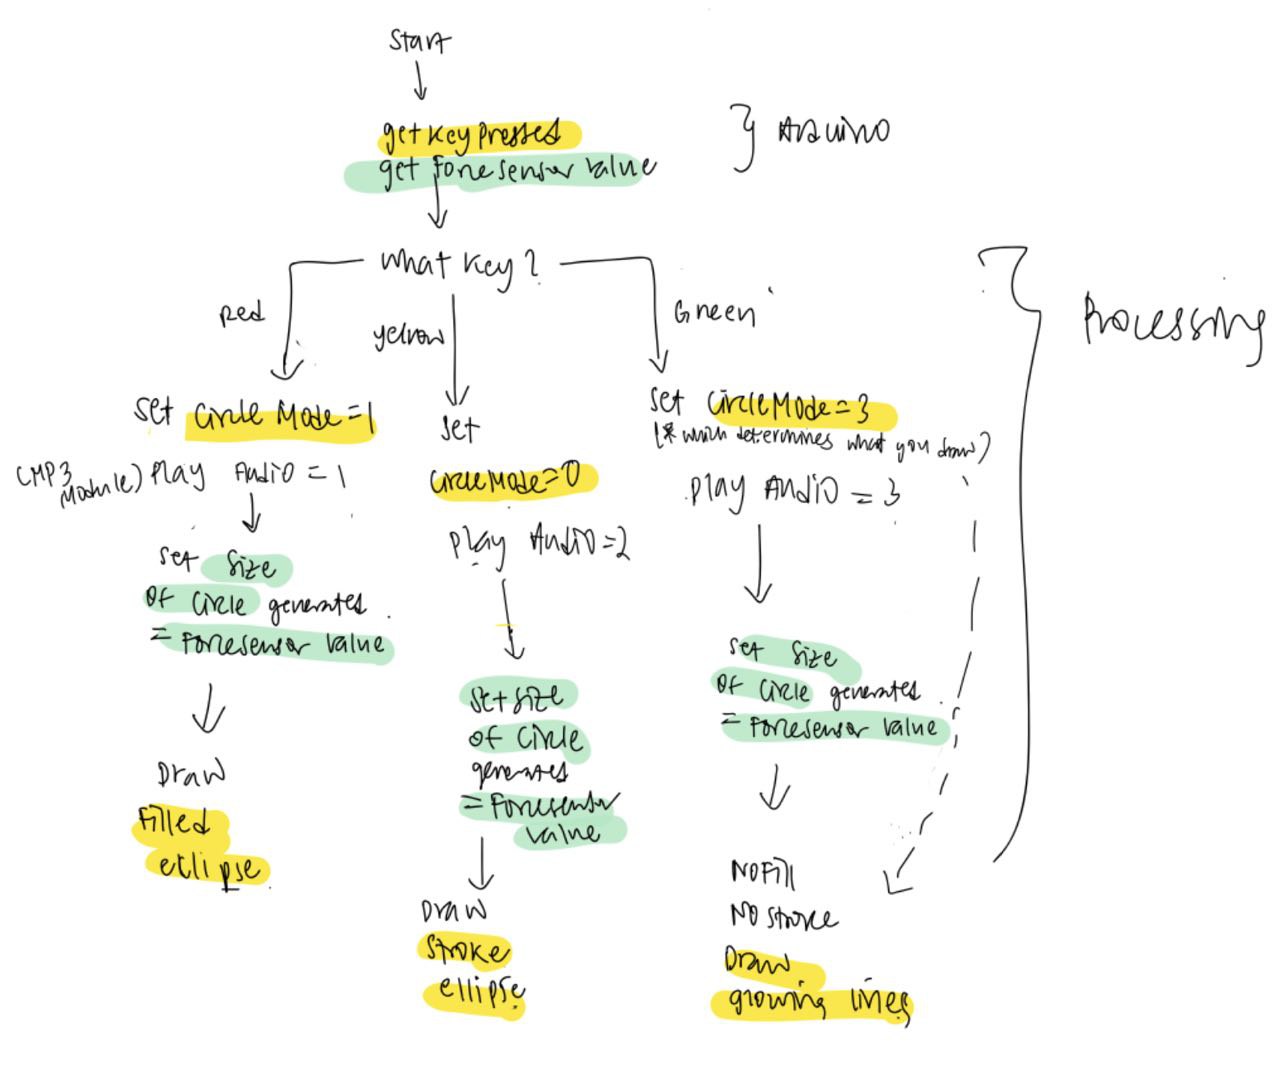 Start
getKeyPressed
get Forcesensor Value
} Arduino
What Key?
Red
Yellow
Green
Processing
Set Circle Mode = 1
(MP3 Module) Play Audio = 1
Set Size
of Circle generates
= Forcesensor Value
Draw
Filled
ellipse
Set
CircleMode=0
Play Audio=2
Set size
of Circle
generates
= Forcesensor
Value
Draw
Stroke
ellipse
Set CircleMode=3
(* which determines what you draw)
Play Audio = 3
Set Size
of Circle generates
= Forcesensor Value
NoFill
No stroke
Draw
growing lines